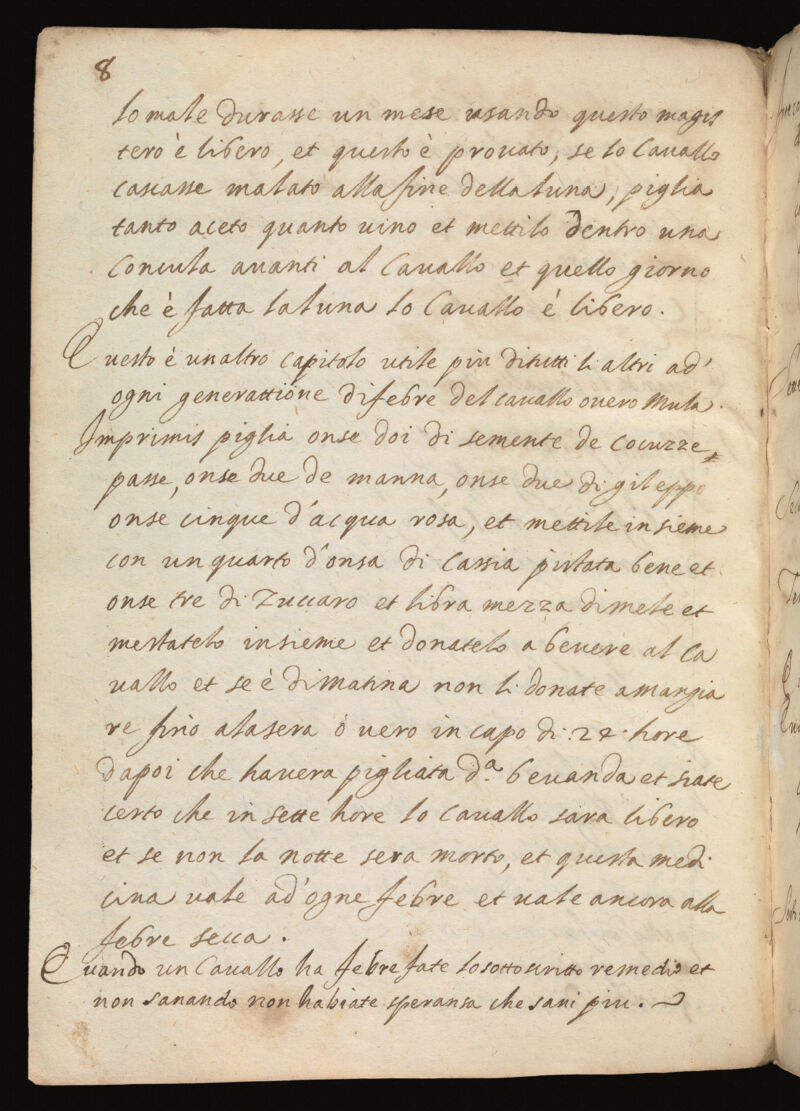 8
lo male durasse un mese usando questo magis
tero è libero, et questo è prouato, se lo Cauallo
cascasse malato alla fine della luna, piglia
tanto aceto quanto uino et mettilo dentro una
Concula auanti al Cauallo et quello giorno
che è fatta la luna lo Cauallo è libero.
Questo è unaltro capitolo utile piu di tutti li altri ad'
ogni generattione di febre del cauallo ouero Mula.
Imprimis piglia onse doi di semente de Cocuzze
passe, onse due de manna, onse due di gileppo
onse cinque d'acqua rosa, et mettile insieme
con un quarto d'onsa di Cassia pistata bene et
onse tre di Zuccaro et libra mezza di mele et
mestatelo insieme et donatelo a beuere al Ca
uallo et se è di Matina non li donate a mangia
re fino a la sera ò uero in capo di .24. hore
dapoi che hauera pigliata d.ª beuanda et siate
certo che in sette hore lo Cauallo sara libero
et se non la notte sera morto, et questa medi
cina uale ad'ogne febre et uale ancora alla
febre secca.
Quando un Cauallo ha febre fate lo sottoscritto remedio et
non sanando non habiate speransa che sani piu.